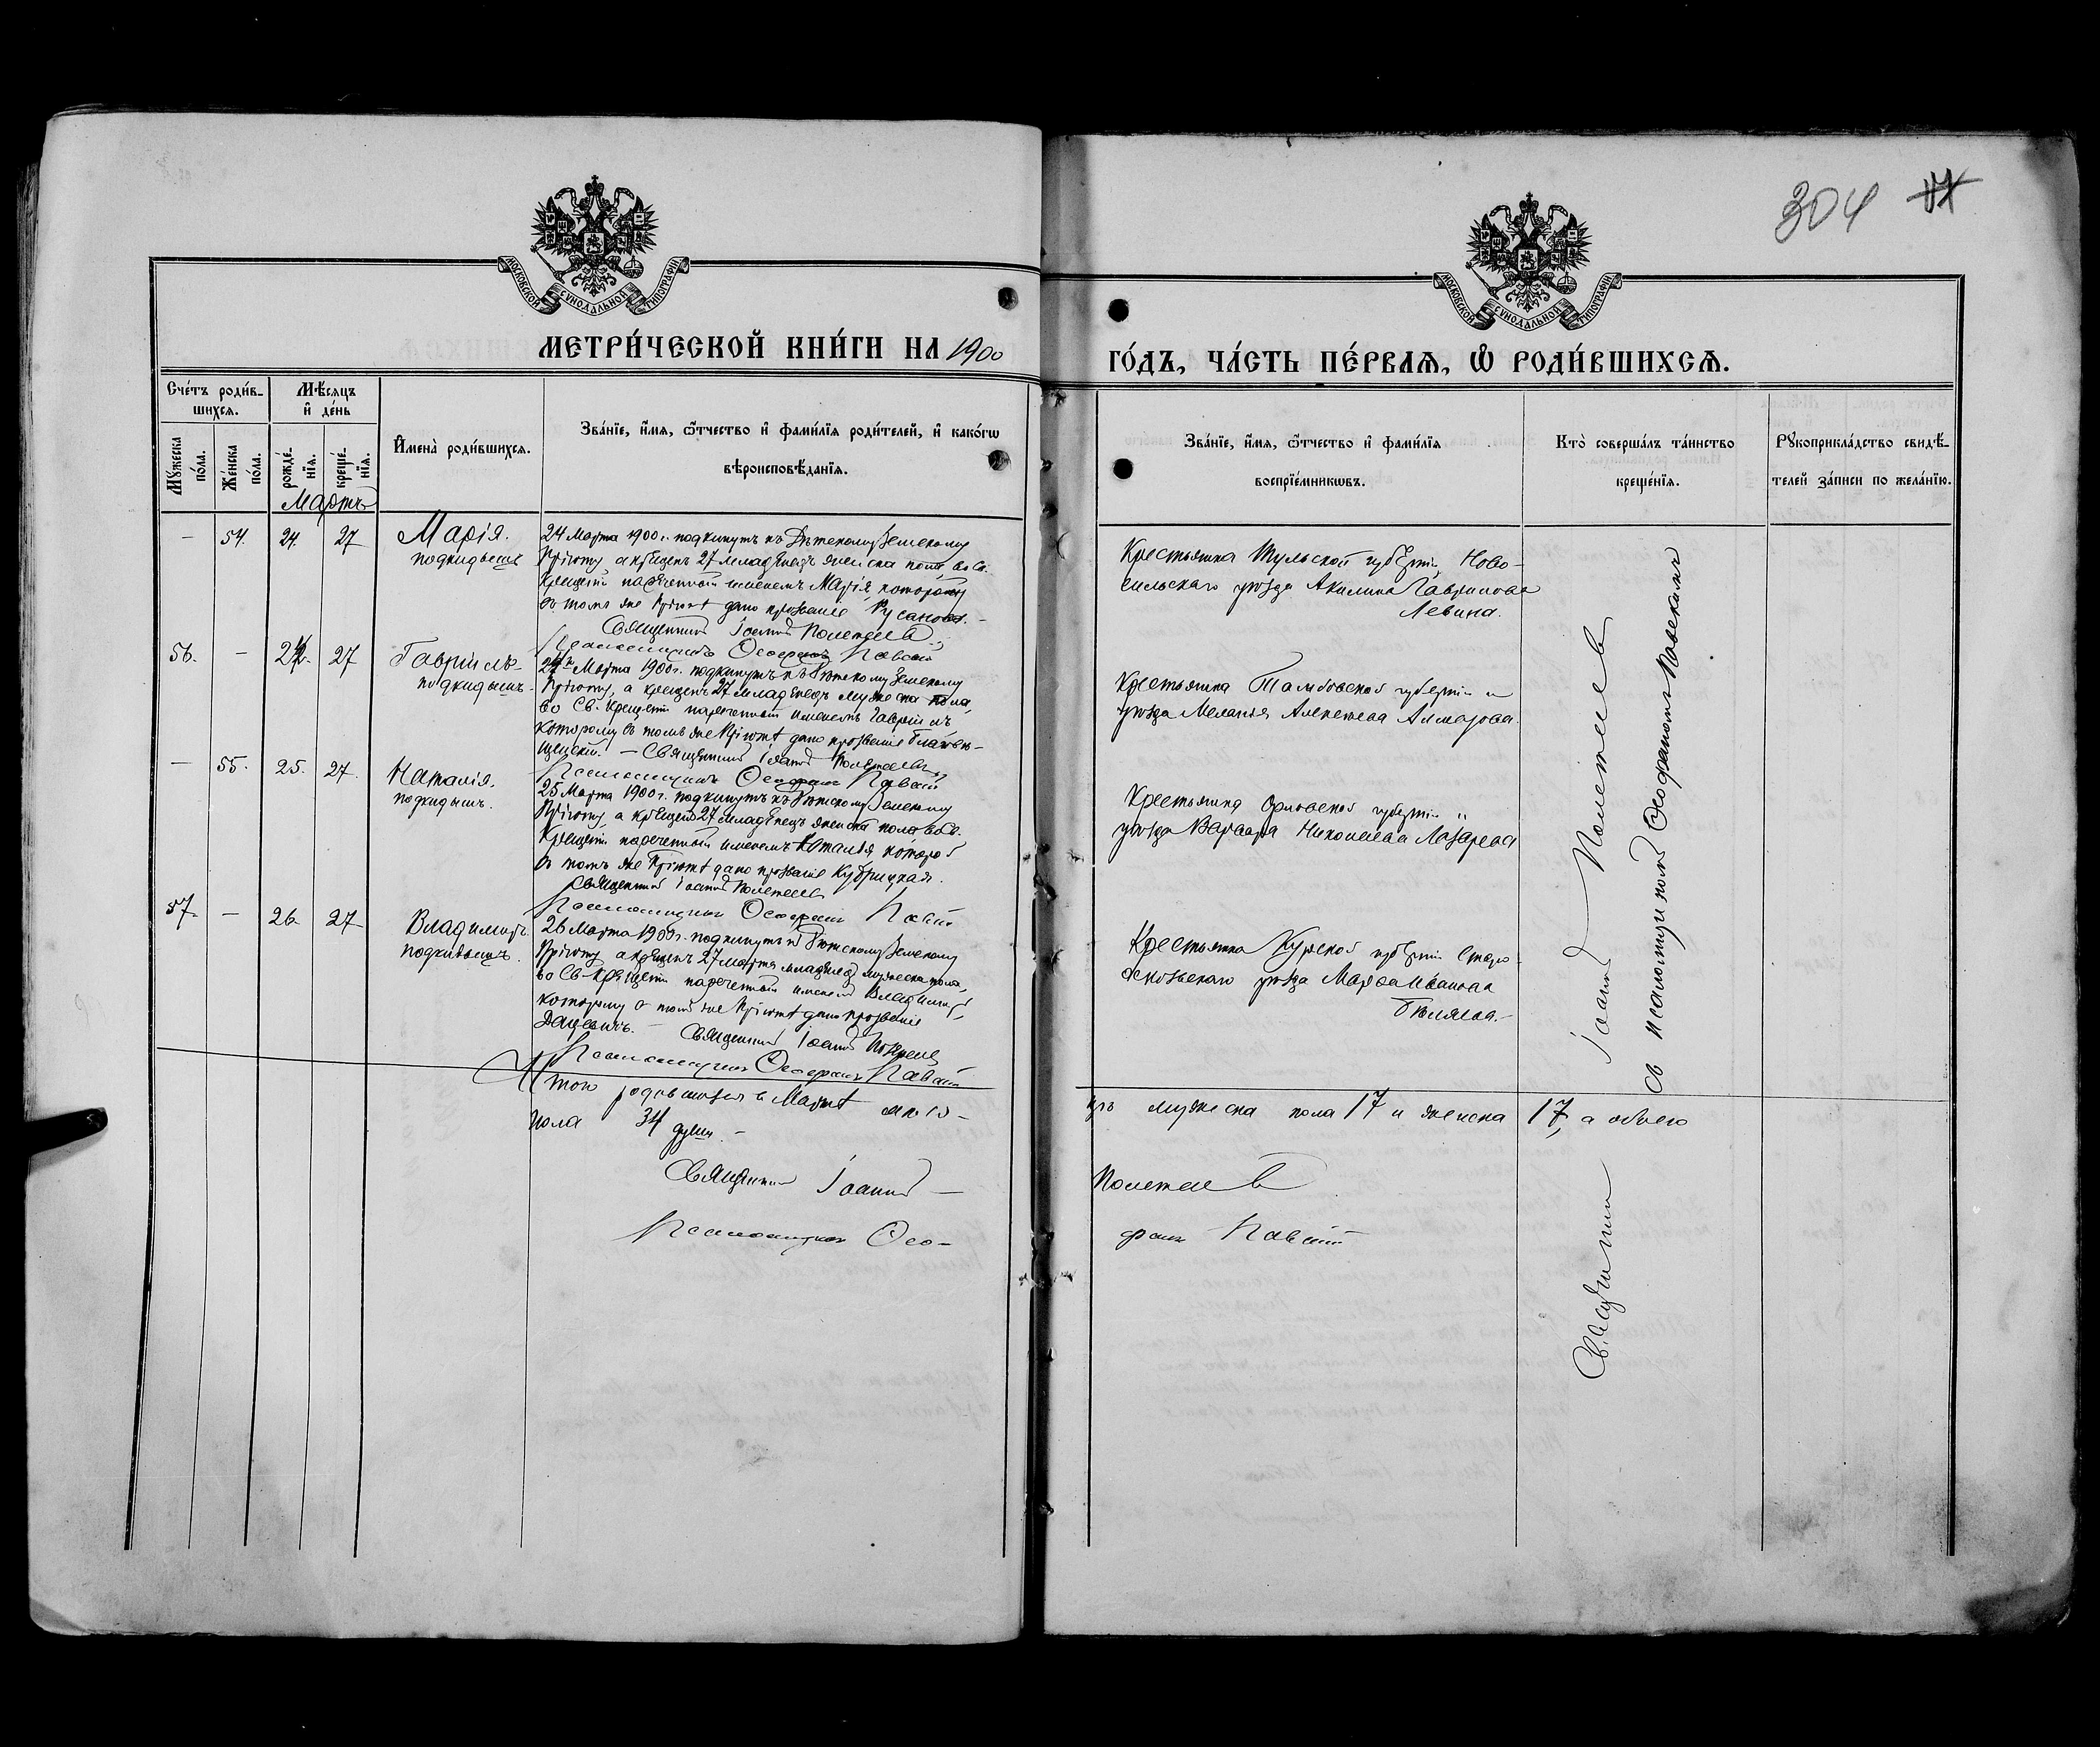 304
МОСКОВСКОЙ СѴНОДАЛЬНОЙ ТИПОГРАФІИ.
МОСКОВСКОЙ СѴНОДАЛЬНОЙ ТИПОГРАФІИ.
МЕТРИ́ЧЕСКОЙ КНИ́ГИ НА 1900
ГО́ДЪ, ЧА́СТЬ ПЕ́РВАѦ, Ѡ РОДИ́ВШИХСѦ.
Сче́тъ роди́в-
шихсѧ.
Мѣ́сѧцъ
и҆ де́нь
Мꙋ́жеска
по́ла.
Же́нска
по́ла.
рожде́-
нїѧ.
креще́-
нїѧ.
И҆мена̀ роди́вшихсѧ.
Зва́нїе, и҆́мѧ, ѻ҆́тчество и҆ фами́лїѧ роди́телей, и҆ како́гѡ
вѣроисповѣ́данїѧ.
Зва́нїе, и҆́мѧ, ѻ҆́тчество и҆ фами́лїѧ
воспрїе́мникѡвъ.
Кто̀ соверша́лъ та́инство
креще́нїѧ.
Рꙋкоприкла́дство свидѣ́-
телей за́писи по жела́нїю.
Мартъ
— 54. 24. 27 Марія.
подкидышъ
24 Марта 1900 г. подкинутъ къ Дѣтскому Земскому
Пріюту, а крещенъ 27 младенецъ женска пола, во Св.
Крещеніи нареченный именемъ Марія, которой
въ томъ же Пріютѣ дано прозваніе Русанова. —
Священникъ Іоаннъ Полетаевъ
Псаломщикъ Ѳеофанъ Павскій
Крестьянка Тульской губерніи, Ново-
сильскаго уѣзда Акилина Гаврилова
Левина.
56. — 24. 27 Гавріилъ
подкидышъ.
Марта 1900 г. подкинутъ къ Дѣтскому Земскому
Пріюту, а крещенъ 27 младенецъ мужеска пола,
во Св. Крещеніи нареченный именемъ Гавріилъ
которому въ томъ же Пріютѣ дано прозваніе Благовѣ-
щенскій. — Священникъ Іоаннъ Полетаевъ
Псаломщикъ Ѳеофанъ Павскій
Крестьянка Тамбовской губерніи и
уѣзда Меланія Алексѣева
— 55. 25. 27. Наталія.
подкидышъ.
25 Марта 1900 г. подкинутъ къ Дѣтскому Земскому
Пріюту, а крещенъ 27 младенецъ женска пола во Св.
Крещеніи нареченный именемъ Наталія которой
въ томъ же Пріютѣ дано прозваніе
Священникъ Іоаннъ Полетаевъ
Псаломщикъ Ѳеофанъ Павскій
Крестьянка Орловской губерніи "
уѣзда Варвара Николаева Лазарева
57. — 26. 27 Владиміръ
подкидышъ.
26 Марта 1900 г. подкинутъ къ Дѣтскому Земскому
Пріюту а крещенъ 27 марта младенецъ мужеска пола,
во Св. Крещеніи нареченный именемъ Владиміръ,
которому въ томъ же Пріютѣ дано прозваніе
Священникъ Іоаннъ Полетаевъ
Псаломщикъ Ѳеофанъ Павскій
Крестьянка Курской губерніи Старо-
оскольскаго уѣзда Марѳа Иванова
Бѣляева. —
Священникъ Іоаннъ Полетаевъ
съ псаломщикомъ Ѳеофаномъ Павскимъ
Итого родившихся въ Мартѣ мужеска пола 17 и женска 17, а обоего
пола 34 души. —
Священникъ Іоаннъ — Полетаевъ
Псаломщикъ Ѳео- фанъ Павскій